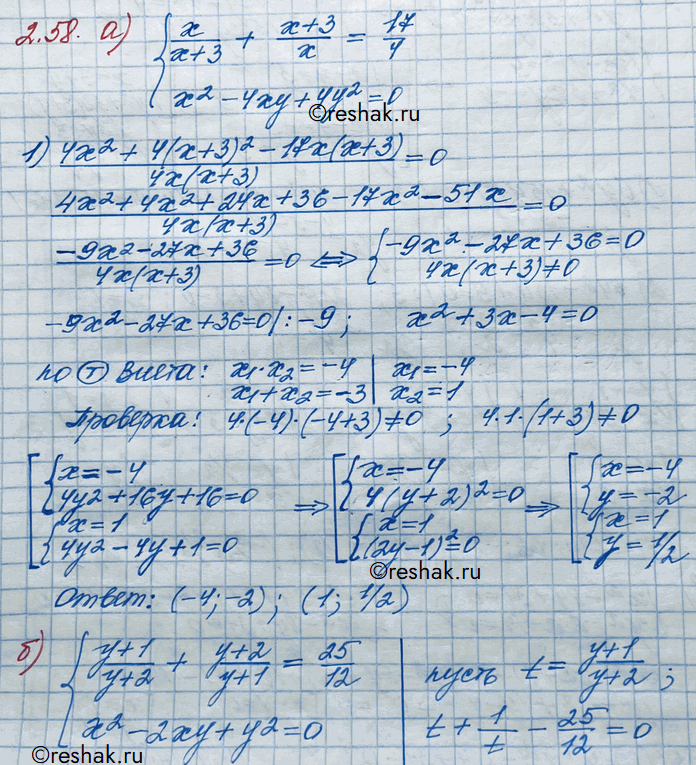 2.58. а) { x/(x+3) + (x+3)/x = 17/4
x² - 4xy + 4y² = 0
©reshak.ru
1) (4x² + 4(x+3)² - 17x(x+3))/(4x(x+3)) = 0
(4x² + 4x² + 24x + 36 - 17x² - 51x)/(4x(x+3)) = 0
(-9x² - 27x + 36)/(4x(x+3)) = 0 ⟺ { -9x² - 27x + 36 = 0
4x(x+3) ≠ 0
-9x² - 27x + 36 = 0 |: -9 ; x² + 3x - 4 = 0
по Ⓣ Виета: x₁·x₂ = -4 | x₁ = -4
x₁ + x₂ = -3 | x₂ = 1
Проверка: 4·(-4)·(-4+3) ≠ 0 ; 4·1·(1+3) ≠ 0
[ { x = -4 ⇒ [ { x = -4 ⇒ [ { x = -4
4y2 + 16y + 16 = 0 4(y+2)² = 0 y = -2
{ x = 1 { x = 1 { x = 1
4y2 - 4y + 1 = 0 (2y-1)² = 0 y = 1/2
©reshak.ru
Ответ: (-4; -2); (1; 1/2)
б) { (y+1)/(y+2) + (y+2)/(y+1) = 25/12 | пусть t = (y+1)/(y+2) ;
x² - 2xy + y² = 0 | t + 1/t - 25/12 = 0
©reshak.ru